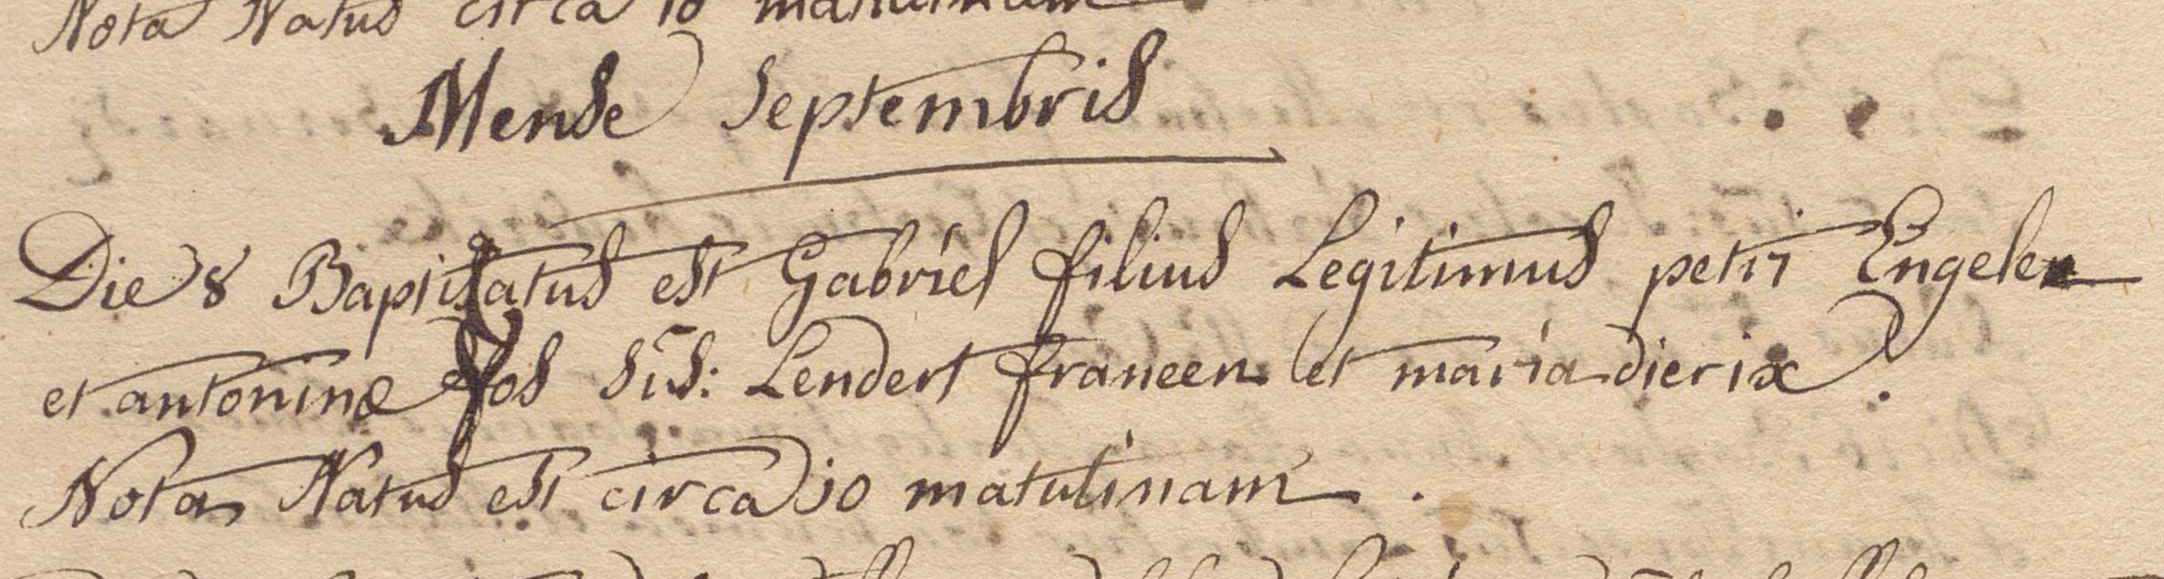 Nota Natus circa 10 matutinam
Mense Septembris
Die 8 Baptisatus est Gabriel filius Legitimus petri Engelen
et antoninæ Vos S:is: Lendert francen et maria dierix.
Nota Natus est circa 10 matutinam.